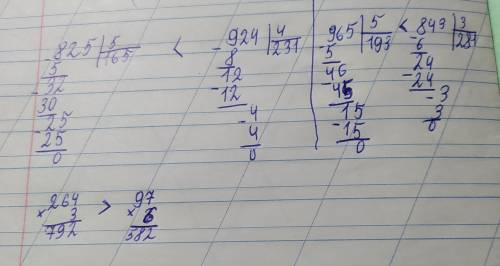 -825|5
5 |165
-32
30
-25
25
0
<
-924|4
8 |231
12
-12
-4
4
0
-965|5
5 |193
46
-45
15
-15
0
<
-849|3
6
24
-24
-3
3
0
264
× 3
792
>
97
× 6
582